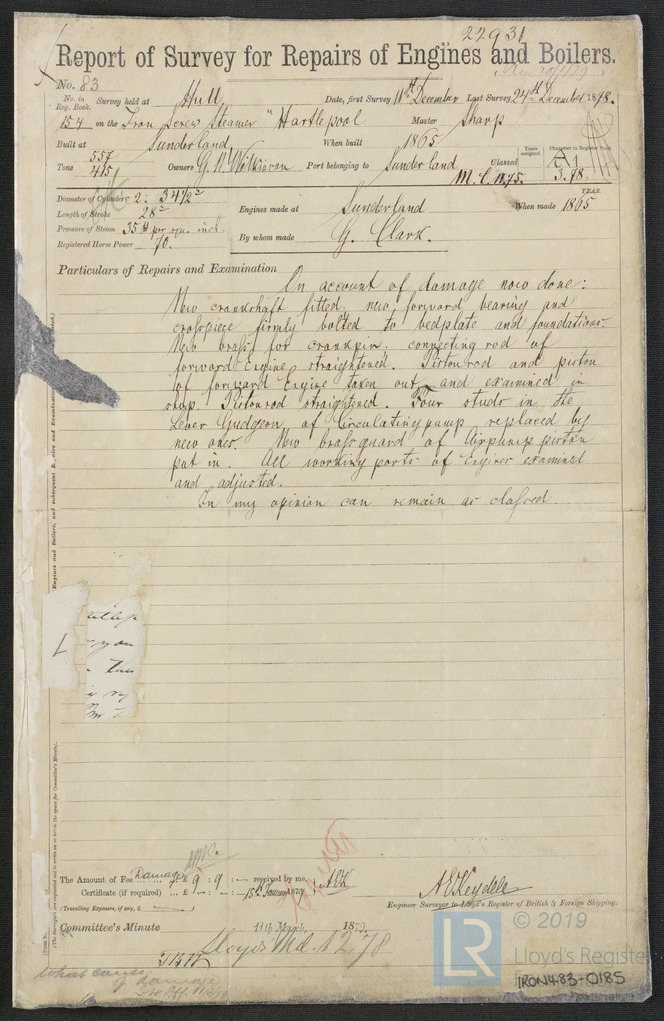 22931
Report of Survey for Repairs of Engines and Boilers.
No. 83
No. in Reg. Book. Survey held at Hull Date, first Survey 11th December Last Survey 24th December 1878.
154 on the Iron Screw Steamer "Hartlepool Master Sharp
Built at Sunderland When built 1865 Years assigned. Character in Register Book.
Tons 557 415 Owners G. W. Wilkinson Port belonging to Sunderland Classed A1
M.C. 11.75. 3.78.
Diameter of Cylinders 2: 34 1/2" YEAR.
Length of Stroke 28" Engines made at Sunderland When made 1865
Pressure of Steam 35 # per sqre inch.
Registered Horse Power 70. By whom made G. Clark.
Particulars of Repairs and Examination
On account of damage now done:
New crankshaft fitted, new forward bearing and
crosspiece firmly bolted to bedplate and foundations.
New brass for crankpin. connecting rod of
forward Engine straightened. Pistonrod and piston
of forward Engine taken out and examined in
shop Pistonrod straightened. Four studs in the
Lever Gudgeon of Circulating pump replaced by
new ones. New brass guard of Airpump piston
put in. All working parts of Engines examined
and adjusted.
In my opinion can remain as classed.
The Amount of Fee Damage £ 9 : 9 : — received by me,
Certificate (if required) ... £ 9 : 9 : — 15th January 1879 AEK
(Travelling Expenses, if any, £ )
A E Keydell
Engineer Surveyor to Lloyd's Register of British & Foreign Shipping.
Committee's Minute 11th March, 1879
Lloyds Md. 12.78
What cause
of damage
LR
© 2019
Lloyd's Register
IRON483-0185